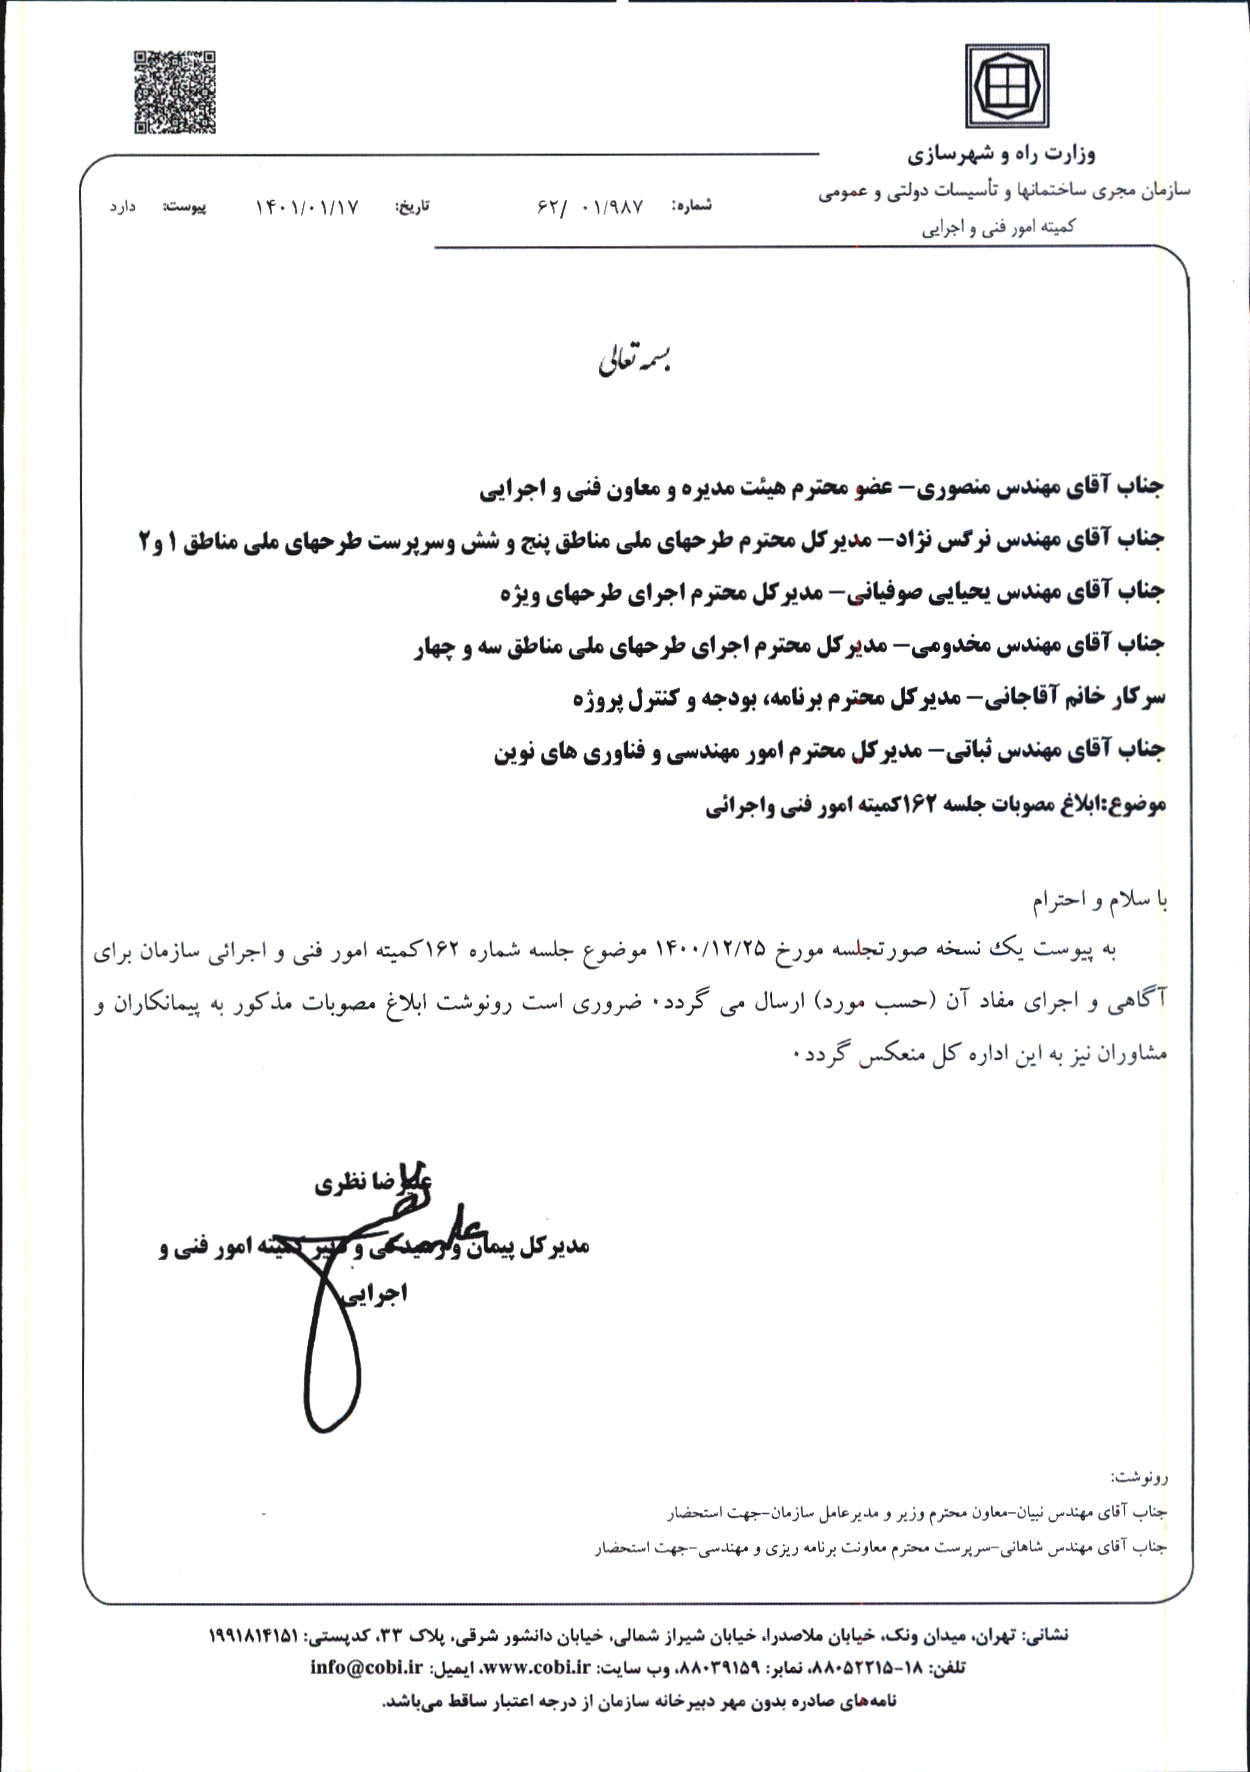 وزارت راه و شهرسازی
سازمان مجری ساختمانها و تأسیسات دولتی و عمومی
کمیته امور فنی و اجرایی
شماره: ۰۱/۹۸۷ /۶۲ تاریخ: ۱۴۰۱/۰۱/۱۷ پیوست: دارد
بسمه تعالی
جناب آقای مهندس منصوری– عضو محترم هیئت مدیره و معاون فنی و اجرایی
جناب آقای مهندس نرگس نژاد– مدیرکل محترم طرحهای ملی مناطق پنج و شش وسرپرست طرحهای ملی مناطق ۱ و۲
جناب آقای مهندس یحیایی صوفیانی– مدیرکل محترم اجرای طرحهای ویژه
جناب آقای مهندس مخدومی– مدیرکل محترم اجرای طرحهای ملی مناطق سه و چهار
سرکار خانم آقاجانی– مدیرکل محترم برنامه، بودجه و کنترل پروژه
جناب آقای مهندس ثباتی– مدیرکل محترم امور مهندسی و فناوری های نوین
موضوع:ابلاغ مصوبات جلسه ۱۶۲کمیته امور فنی واجرائی
با سلام و احترام
به پیوست یک نسخه صورتجلسه مورخ ۱۴۰۰/۱۲/۲۵ موضوع جلسه شماره ۱۶۲کمیته امور فنی و اجرائی سازمان برای
آگاهی و اجرای مفاد آن (حسب مورد) ارسال می گردد۰ ضروری است رونوشت ابلاغ مصوبات مذکور به پیمانکاران و
مشاوران نیز به این اداره کل منعکس گردد۰
علیرضا نظری
مدیرکل پیمان و رسیدگی و دبیر کمیته امور فنی و
اجرایی
رونوشت:
جناب آقای مهندس نبیان-معاون محترم وزیر و مدیرعامل سازمان-جهت استحضار
جناب آقای مهندس شاهانی-سرپرست محترم معاونت برنامه ریزی و مهندسی-جهت استحضار
نشانی: تهران، میدان ونک، خیابان ملاصدرا، خیابان شیراز شمالی، خیابان دانشور شرقی، پلاک ۳۳، کدپستی: ۱۹۹۱۸۱۴۱۵۱
تلفن: ۱۸-۸۸۰۵۲۲۱۵، نمابر: ۸۸۰۳۹۱۵۹، وب سایت: www.cobi.ir، ایمیل: info@cobi.ir
نامه‌های صادره بدون مهر دبیرخانه سازمان از درجه اعتبار ساقط می‌باشد.